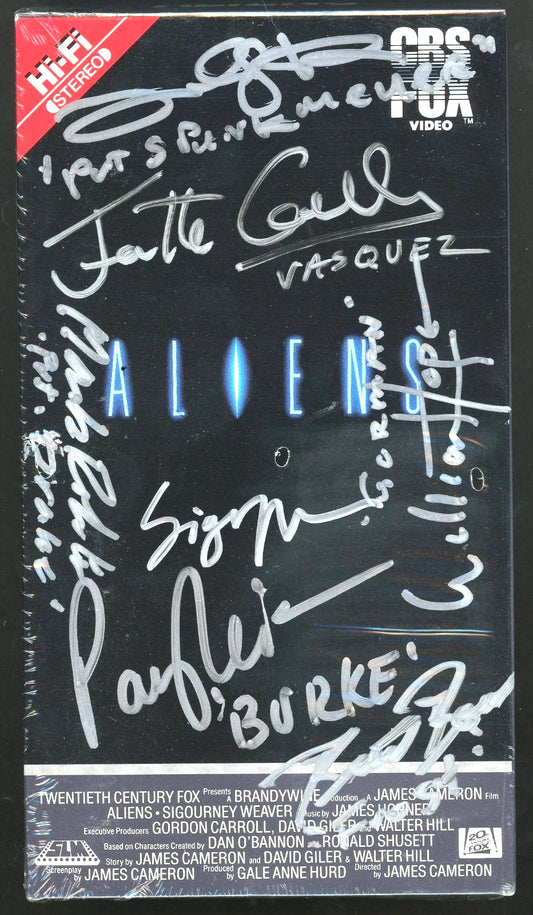 Hi-Fi
STEREO
CBS
FOX
VIDEO™
'Pvt SPUNKMEYER"
Jenette
VASQUEZ
Mark Rolston
'Pvt. Drake'
ALIENS
'GORMAN'
William Hope
Sigourney
Paul Reiser
'BURKE'
TWENTIETH CENTURY FOX Presents A BRANDYWINE Production A JAMES CAMERON Film
ALIENS • SIGOURNEY WEAVER Music by JAMES HORNER
Executive Producers GORDON CARROLL, DAVID GILER and WALTER HILL
Based on Characters Created by DAN O'BANNON and RONALD SHUSETT
Story by JAMES CAMERON and DAVID GILER & WALTER HILL
Screenplay by JAMES CAMERON Produced by GALE ANNE HURD Directed by JAMES CAMERON
SLM
20th CENTURY FOX